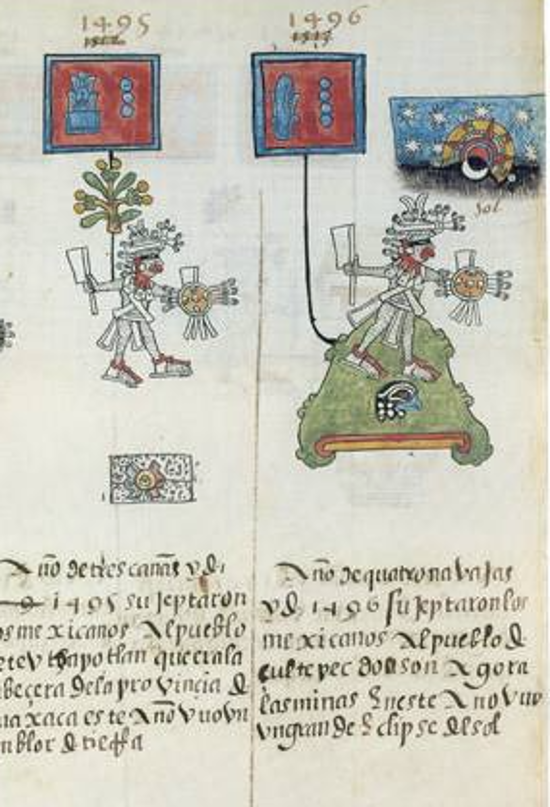 1495
1496
sol
Año de tres cañas y de
1495 sujeptaron
os mexicanos Al pueblo
tzapotlan que era la
abeçera de la provincia de
uaxaca este Año Vuo vn
mblor de tierra
Año de quatro navajas
y de 1496 sujeptaron los
mexicanos Al pueblo de
cultepec donson Agora
las minas Eneste Año vuo
vn gran de Eclipse del sol